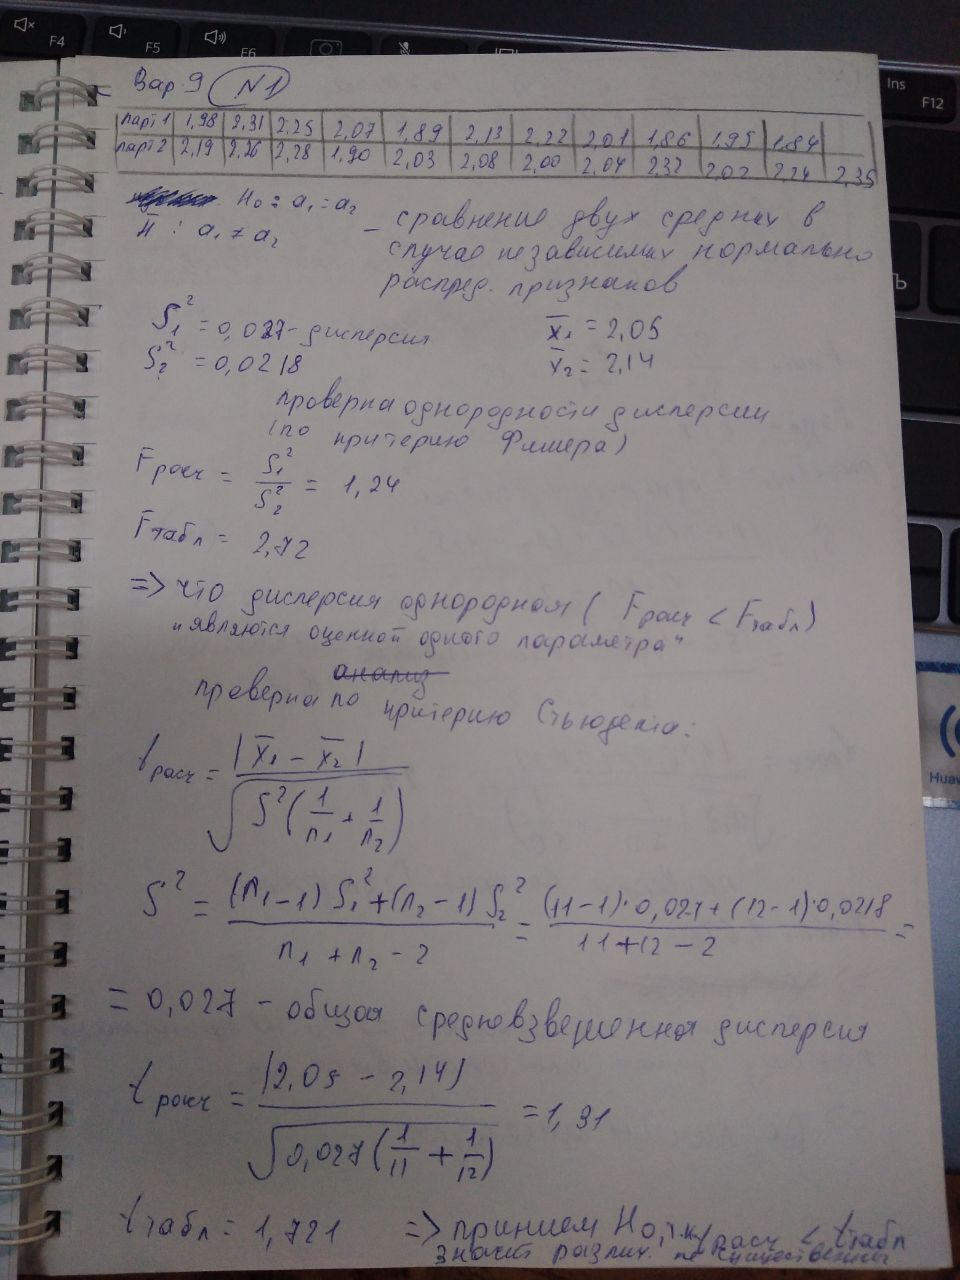 F4
F5
F6
Ins
F12
Ь
Huaw
Вар.9 N1
Парт1 1,98 2,31 2,25 2,07 1,89 2,13 2,22 2,01 1,86 1,95 1,84
Парт2 2,19 2,26 2,28 1,90 2,03 2,08 2,00 2,04 2,32 2,02 2,24 2,35
H₀ : a₁ = a₂
H̄ : a₁ ≠ a₂
– сравнение двух средних в
случае независимых нормально
распред. признаков
S₁² = 0,027 - дисперсия
S₂² = 0,0218
x̄₁ = 2,05
x̄₂ = 2,14
проверка однородности дисперсии
(по критерию Фишера)
Fрасч = S₁²/S₂² = 1,24
Fтабл = 2,72
=> что дисперсия однородная ( Fрасч < Fтабл)
"являются оценкой одного параметра"
анализ
проверка по критерию Стьюдента:
tрасч = |x̄₁ – x̄₂| / √(S²(1/n₁ + 1/n₂))
S² = ((n₁–1) S₁² + (n₂–1) S₂²) / (n₁ + n₂ – 2) = ((11–1)·0,027 + (12–1)·0,0218) / (11+12–2) =
= 0,027 – общая средневзвешенная дисперсия
tрасч = |2,05 – 2,14| / √(0,027(1/11 + 1/12)) = 1,31
tтабл = 1,721 => приним H₀, т.к. tрасч < tтабл
значит различ. не существенны